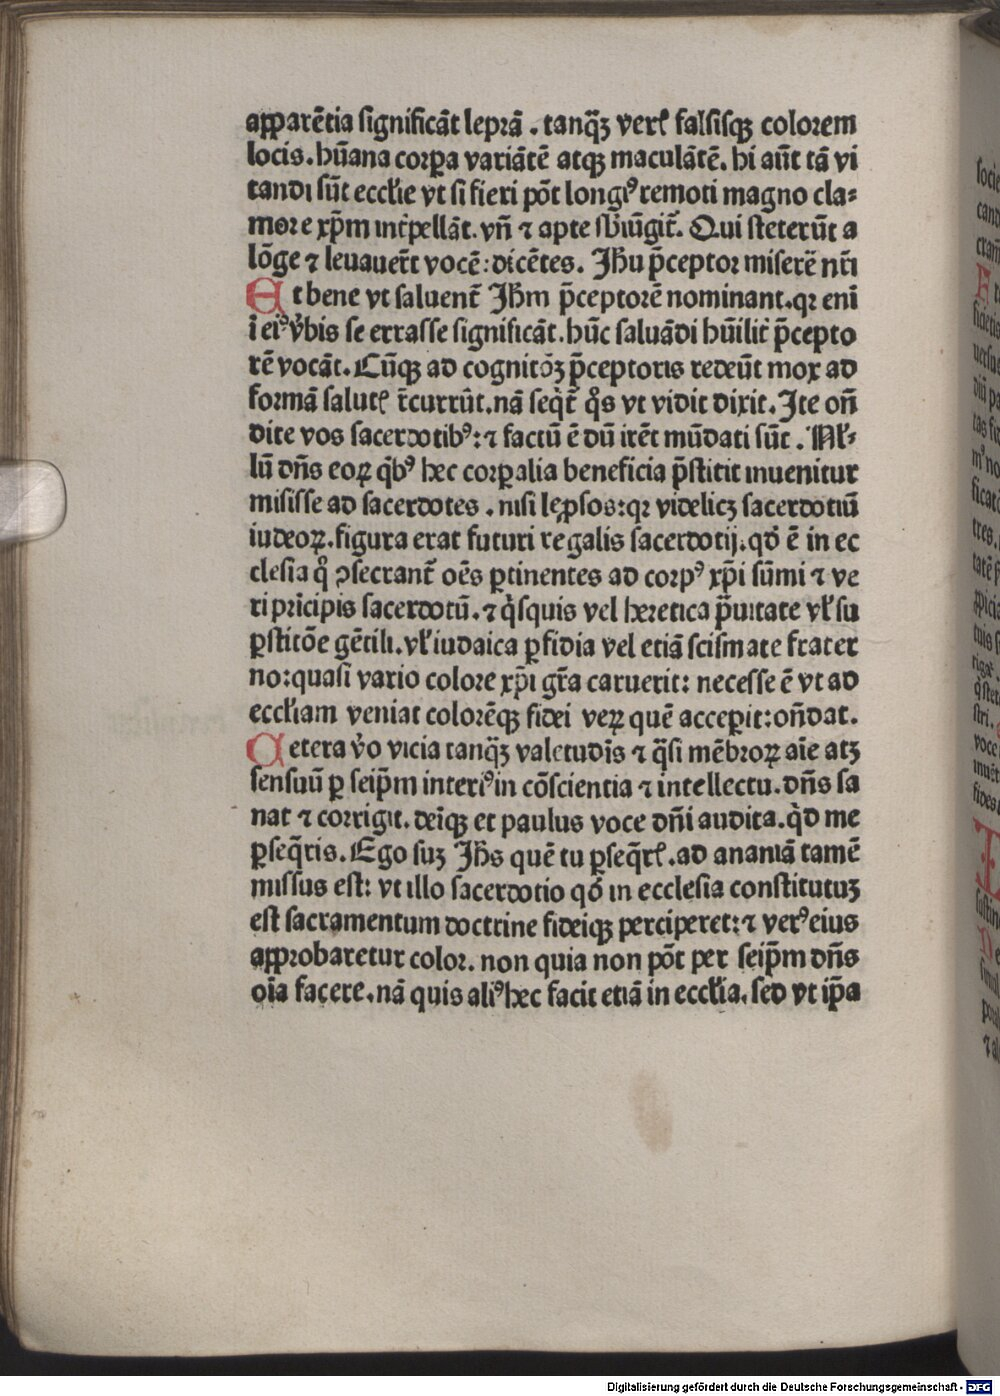 apparētia significāt leprā . tanq̄ꝫ verꝭ falsisqꝫ colorem
locis. hūana corꝑa variātē atqꝫ maculātē. hi aūt tā vi
tandi sūt ecclīe vt si fieri pōt longiꝰ remoti magno cla⸗
more xp̄m int̄pellāt. vn̄ ⁊ apte sb̄iūgit̄. Qui steterūt a
lōge ⁊ leuauer̄t vocē: dicētes. Jhū p̄ceptor miserē nr̄i
Et bene vt saluent̄ Jhm̄ p̄ceptorē nominant. qꝛ eni
ī eiꝰ v̓bis se errasse significāt. hūc saluādi hūilit̓ p̄cepto
rē vocāt. Cūqꝫ ad cognitōꝫ p̄ceptoris redeūt mox ad
formā salutꝭ r̄currūt. nā seq̄t̄ q̊s vt vidit dixit. Ite on̄
dite vos sacerdotibꝰ: ⁊ factū ē dū irēt mūdati sūt . Nł⸗
lū dn̄s eoꝝ q̓bꝰ hec corꝑalia beneficia p̄stitit inuenitur
misisse ad sacerdotes . nisi leꝓsos: qꝛ videlicꝫ sacerdotiū
iudeoꝝ. figura erat futuri regalis sacerdotij. qd̓ ē in ec
clesia q̊ ꝯsecrant̄ oēs ꝑtinentes ad corpꝰ xp̄i sūmi ⁊ ve
ri prīcipis sacerdotū. ⁊ q̓squis vel heretica p̄uitate vł su
ꝑstitōe gētili. vł iudaica ꝑfidia vel etiā scismate frater
no: quasi vario colore xp̄i gr̄a caruerit: necesse ē vt ad
eccłiam veniat colorēqꝫ fidei veꝝ quē acceꝑit: on̄dat.
Cetera v̓o vicia tanq̄ꝫ valetudīs ⁊ q̄si mēbroꝝ aīe atꝫ
sensuū ꝑ seip̄m interiꝰ in cōscientia ⁊ intellectu. dn̄s sa
nat ⁊ corrigit. deīqꝫ et paulus voce dn̄i audita. q̓d me
ꝑseq̄ris. Ego suꝫ Jhs̄ quē tu ꝑseq̄rꝭ. ad ananiā tamē
missus est: vt illo sacerdotio qd̓ in ecclesia constitutuꝫ
est sacramentum doctrine fideiqꝫ perciperet: ⁊ verꝰ eius
approbaretur color. non quia non pōt per seip̄m dn̄s
oīa facere. nā quis aliꝰ hec facit etiā in eccłia. sed vt ip̄a
Digitalisierung gefördert durch die Deutsche Forschungsgemeinschaft - DFG